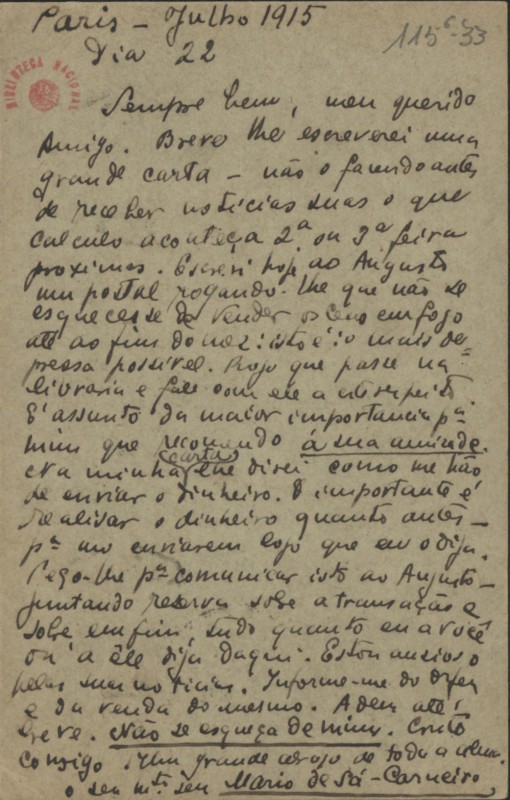 Paris – Julho 1915
115⁶-33
Dia 22
BIBLIOTECA NACIONAL
Sempre bem, meu querido
Amigo. Breve lhe escreverei uma
grande carta – não o fazendo antes
de receber noticias suas o que
calculo aconteça 2ª ou 3ª feira
proximas. Escrevi hoje ao Augusto
um postal rogando-lhe que não se
esquecesse de vender os Ceu em fogo
até ao fim do mez: isto é: o mais de-
pressa possivel. Rogo que passe na
livraria e fale com ele a tal respeito.
E' assunto da maior importancia pª
mim que recomendo á sua amizade.
Na minha carta lhe direi como me hão
de enviar o dinheiro. O importante é
realisar o dinheiro quanto antes –
pª mo enviarem logo que eu o diga.
Peço-lhe pª comunicar isto ao Augusto –
juntando reserva sobre a transação e
sobre, emfim, tudo quanto eu a você
ou a êle diga daqui. Estou ancioso
pelas suas noticias. Informe-me do Orfeu
e da venda do mesmo. Adeus até
breve. Não se esqueça de mim. Conto
consigo. Um grande abraço de toda a alma.
o seu mtº seu Mario de Sá-Carneiro